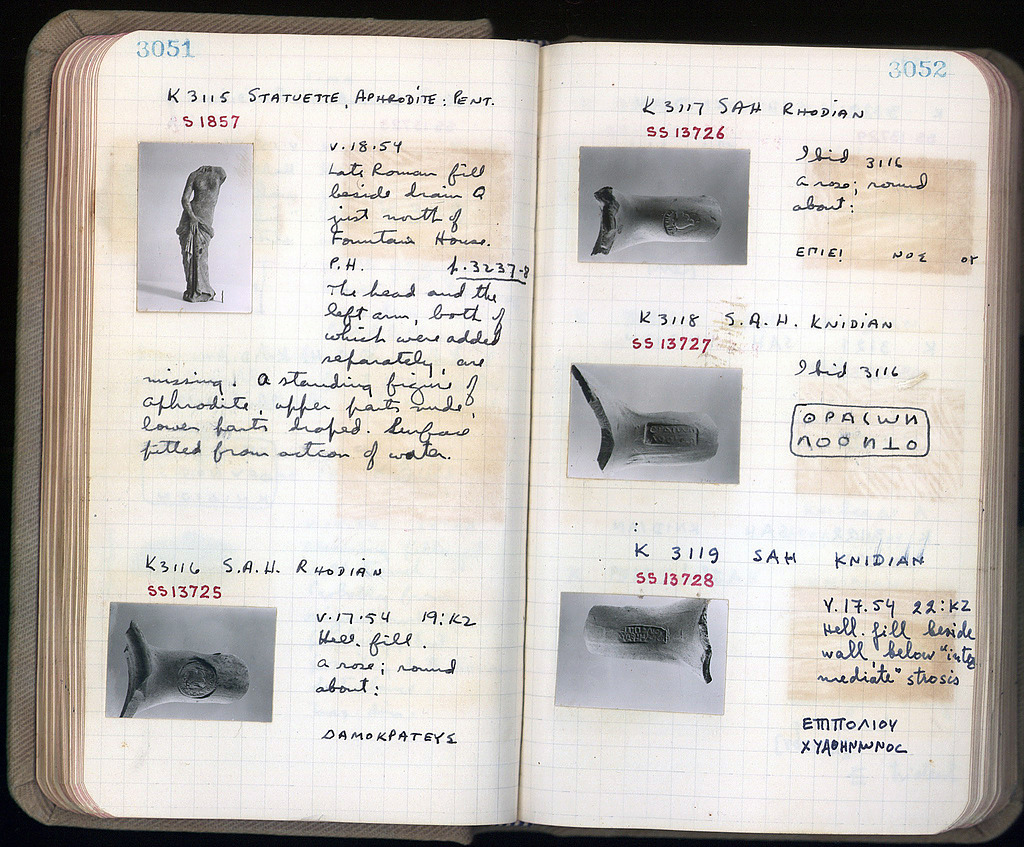 3051
K 3115 STATUETTE, APHRODITE: PENT.
S 1857
V.18.54
Late Roman fill
beside drain Q
just north of
Fountain House.
P.H. p.3237-8
The head and the
left arm, both of
which were added
separately, are
missing. A standing figure of
Aphrodite, upper parts nude,
lower parts draped. Surface
pitted from action of water.
K3116 S.A.H. RHODIAN
SS13725
V.17.54 19:ΚΖ
Hell. fill.
A rose; round
about:
ΔΑΜΟΚΡΑΤΕΥΣ
3052
K 3117 SAH RHODIAN
SS 13726
Ibid 3116
A rose; round
about:
ΕΠΙΕΙ ΝΟΣ
K3118 S.A.H. KNIDIAN
SS 13727
Ibid 3116
ΘΡΑϹΩΝ
K 3119 SAH KNIDIAN
SS 13728
V.17.54 22:ΚΖ
Hell. fill beside
wall, below "inter
mediate" strosis
ΕΠΙΠΟΛΙΟΥ